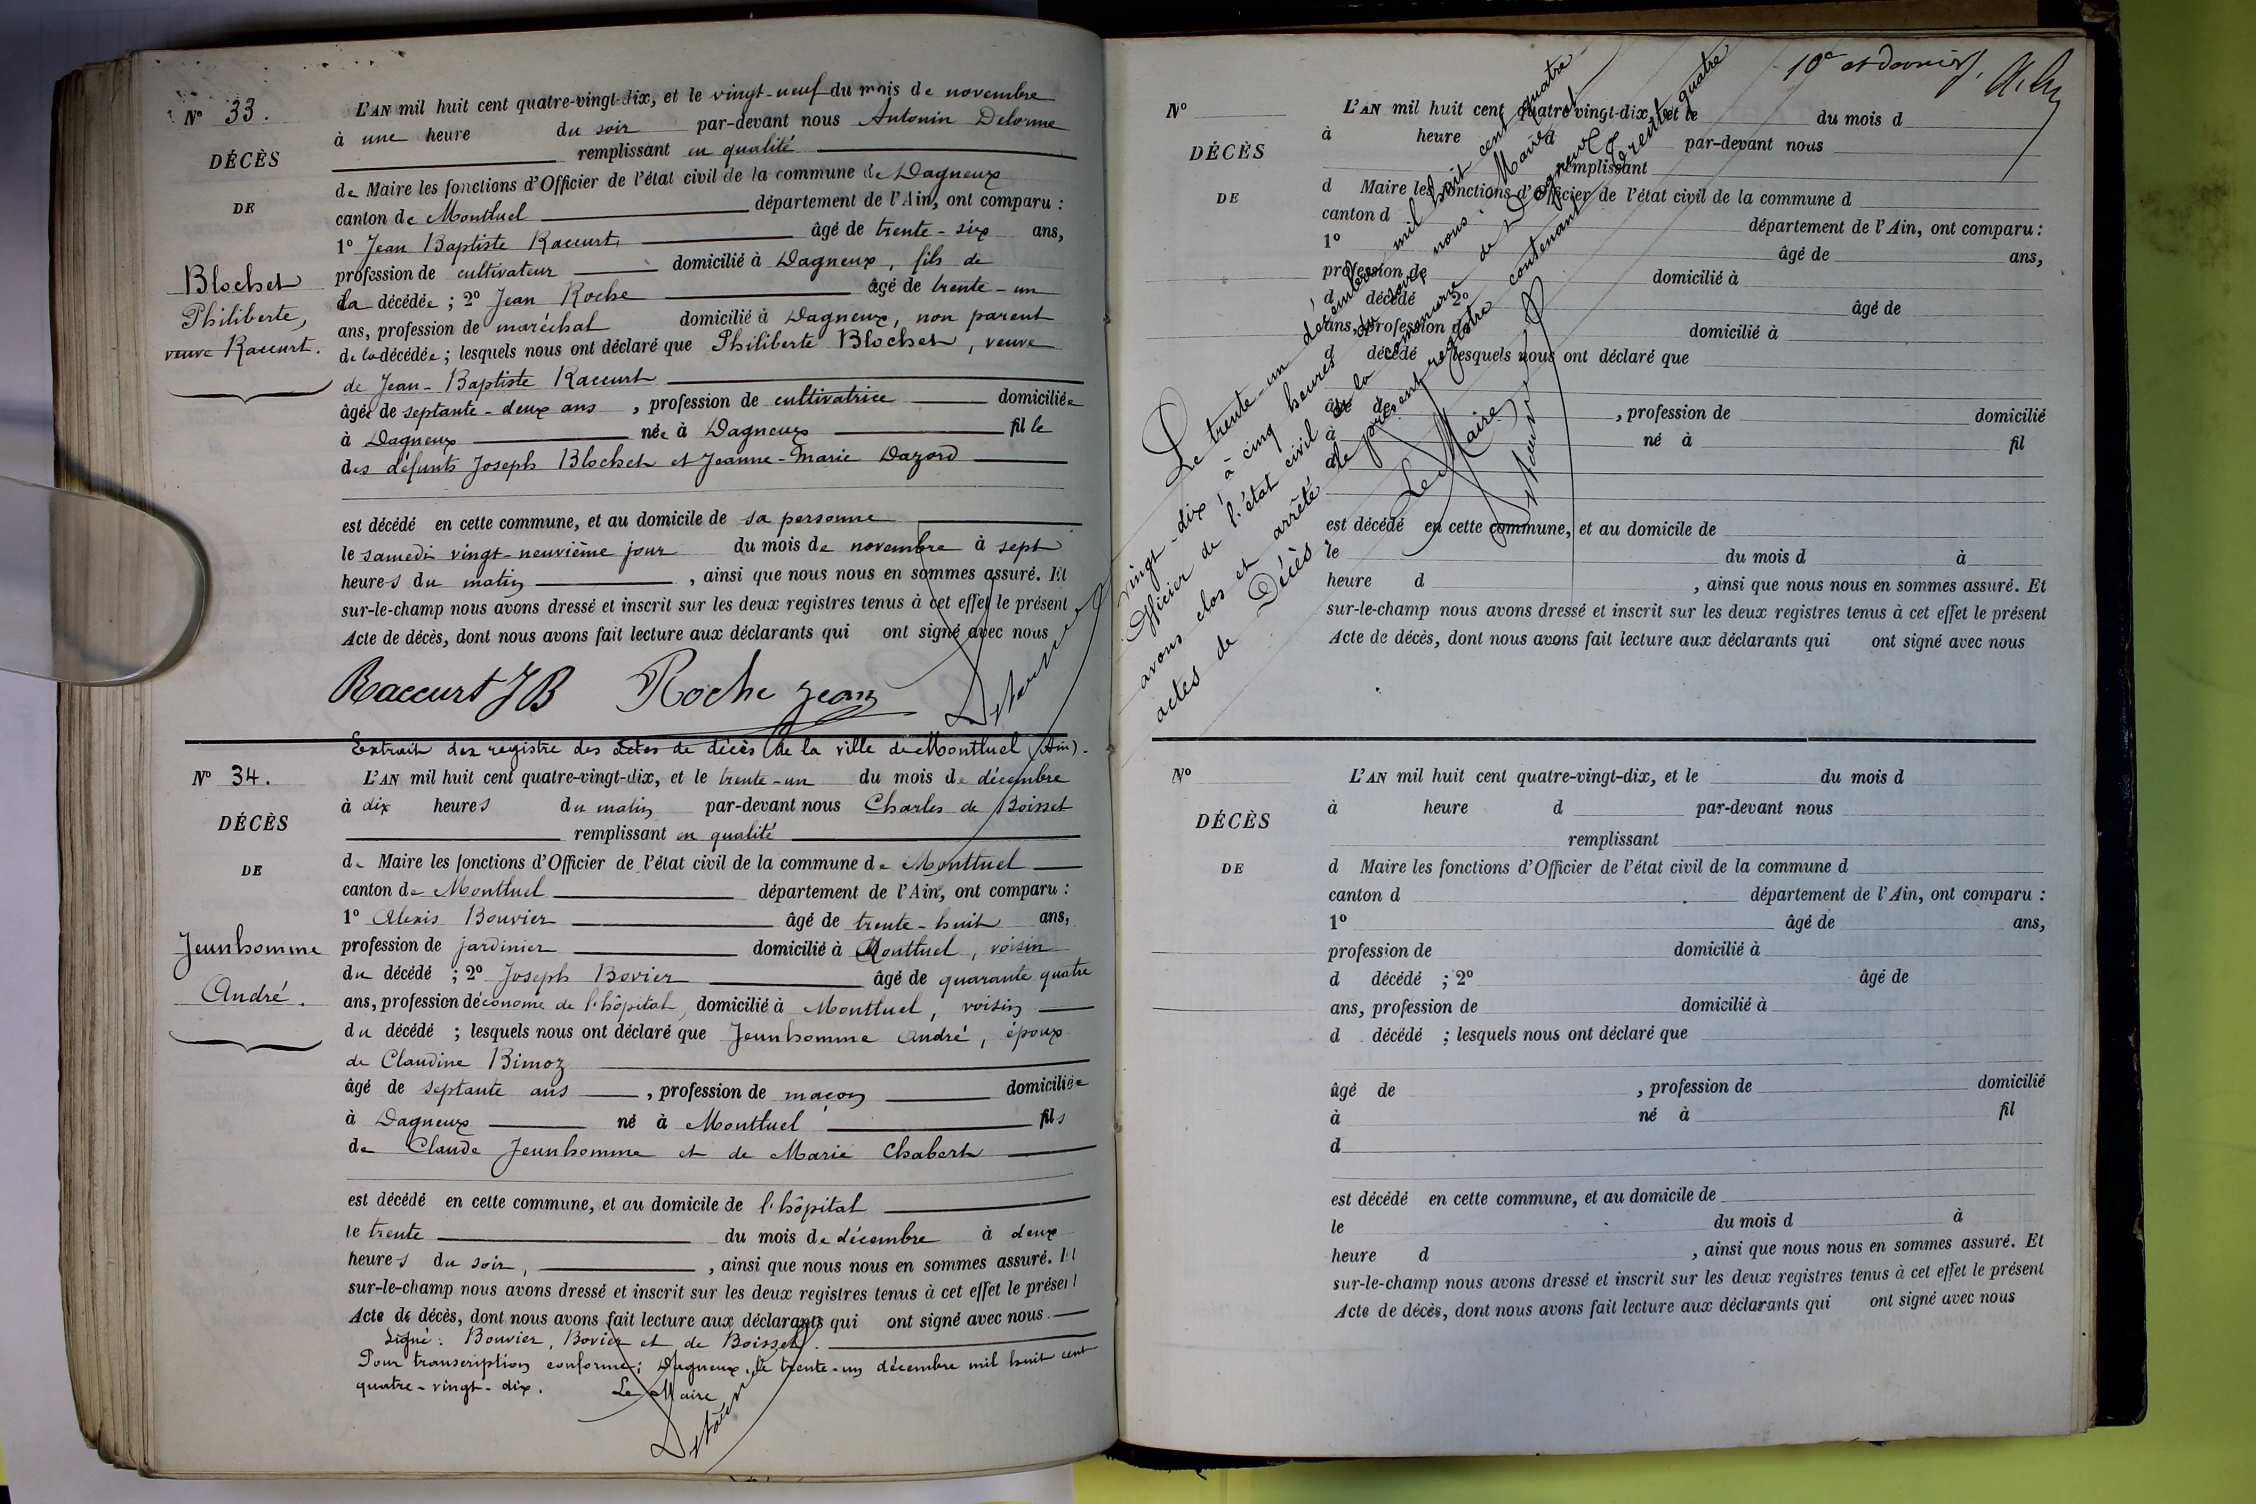 N° 33.
DÉCÈS
DE
Blochet
Philiberte,
veuve Raccurt.
L'AN mil huit cent quatre-vingt-dix, et le vingt-neuf du mois de novembre
à une heure du soir par-devant nous Antonin Delorme
remplissant en qualité
de Maire les fonctions d'Officier de l'état civil de la commune de Dagneux
canton de Montluel département de l'Ain, ont comparu :
1° Jean Baptiste Raccurt, âgé de trente-six ans,
profession de cultivateur domicilié à Dagneux, fils de
la décédée ; 2° Jean Roche âgé de trente-un
ans, profession de maréchal domicilié à Dagneux, non parent
de la décédée ; lesquels nous ont déclaré que Philiberte Blochet, veuve
de Jean-Baptiste Raccurt
âgée de septante-deux ans, profession de cultivatrice domiciliée
à Dagneux née à Dagneux fille
des défunts Joseph Blochet et Jeanne-Marie Dazord
est décédé en cette commune, et au domicile de sa personne
le samedi vingt-neuvième jour du mois de novembre à sept
heures du matin, ainsi que nous nous en sommes assuré. Et
sur-le-champ nous avons dressé et inscrit sur les deux registres tenus à cet effet le présent
Acte de décès, dont nous avons fait lecture aux déclarants qui ont signé avec nous
Raccurt JB Roche Jean
Extrait des registre des actes de décès de la ville de Montluel (Ain).
N° 34.
DÉCÈS
DE
Jeunhomme
André.
L'AN mil huit cent quatre-vingt-dix, et le trente-un du mois de décembre
à dix heures du matin par-devant nous Charles de Boisset
remplissant en qualité
de Maire les fonctions d'Officier de l'état civil de la commune de Montluel
canton de Montluel département de l'Ain, ont comparu :
1° Alexis Bouvier âgé de trente-huit ans,
profession de jardinier domicilié à Montluel, voisin
du décédé ; 2° Joseph Bovier âgé de quarante quatre
ans, profession d'économe de l'hôpital, domicilié à Montluel, voisin
du décédé ; lesquels nous ont déclaré que Jeunhomme André, époux
de Claudine Bimoz
âgé de septante ans, profession de maçon domiciliée
à Dagneux né à Montluel fils
de Claude Jeunhomme et de Marie Chabert
est décédé en cette commune, et au domicile de l'hôpital
le trente du mois de décembre à deux
heures du soir, ainsi que nous nous en sommes assuré. Et
sur-le-champ nous avons dressé et inscrit sur les deux registres tenus à cet effet le présent
Acte de décès, dont nous avons fait lecture aux déclarants qui ont signé avec nous.
Signé : Bouvier, Bovier et de Boisset.
Pour transcription conforme : Dagneux, le trente-un décembre mil huit cent
quatre-vingt-dix. Le Maire
10e et dernier,
Le trente-un décembre mil huit cent quatre
vingt-dix à cinq heures du soir, nous Maire et
Officier de l'état civil de la commune de Dagneux
avons clos et arrêté le présent registre contenant trente quatre
actes de Décès
Le Maire
N°
DÉCÈS
DE
L'AN mil huit cent quatre-vingt-dix, et le du mois d
à heure d par-devant nous
remplissant
d Maire les fonctions d'Officier de l'état civil de la commune d
canton d département de l'Ain, ont comparu :
1° âgé de ans,
profession de domicilié à
d décédé 2° âgé de
ans, profession de domicilié à
d décédé lesquels nous ont déclaré que
âgé de , profession de domicilié
à né à fil
d
est décédé en cette commune, et au domicile de
le du mois d à
heure d , ainsi que nous nous en sommes assuré. Et
sur-le-champ nous avons dressé et inscrit sur les deux registres tenus à cet effet le présent
Acte de décès, dont nous avons fait lecture aux déclarants qui ont signé avec nous
N°
DÉCÈS
DE
L'AN mil huit cent quatre-vingt-dix, et le du mois d
à heure d par-devant nous
remplissant
d Maire les fonctions d'Officier de l'état civil de la commune d
canton d département de l'Ain, ont comparu :
1° âgé de ans,
profession de domicilié à
d décédé ; 2° âgé de
ans, profession de domicilié à
d décédé ; lesquels nous ont déclaré que
âgé de , profession de domicilié
à né à fil
d
est décédé en cette commune, et au domicile de
le du mois d à
heure d , ainsi que nous nous en sommes assuré. Et
sur-le-champ nous avons dressé et inscrit sur les deux registres tenus à cet effet le présent
Acte de décès, dont nous avons fait lecture aux déclarants qui ont signé avec nous